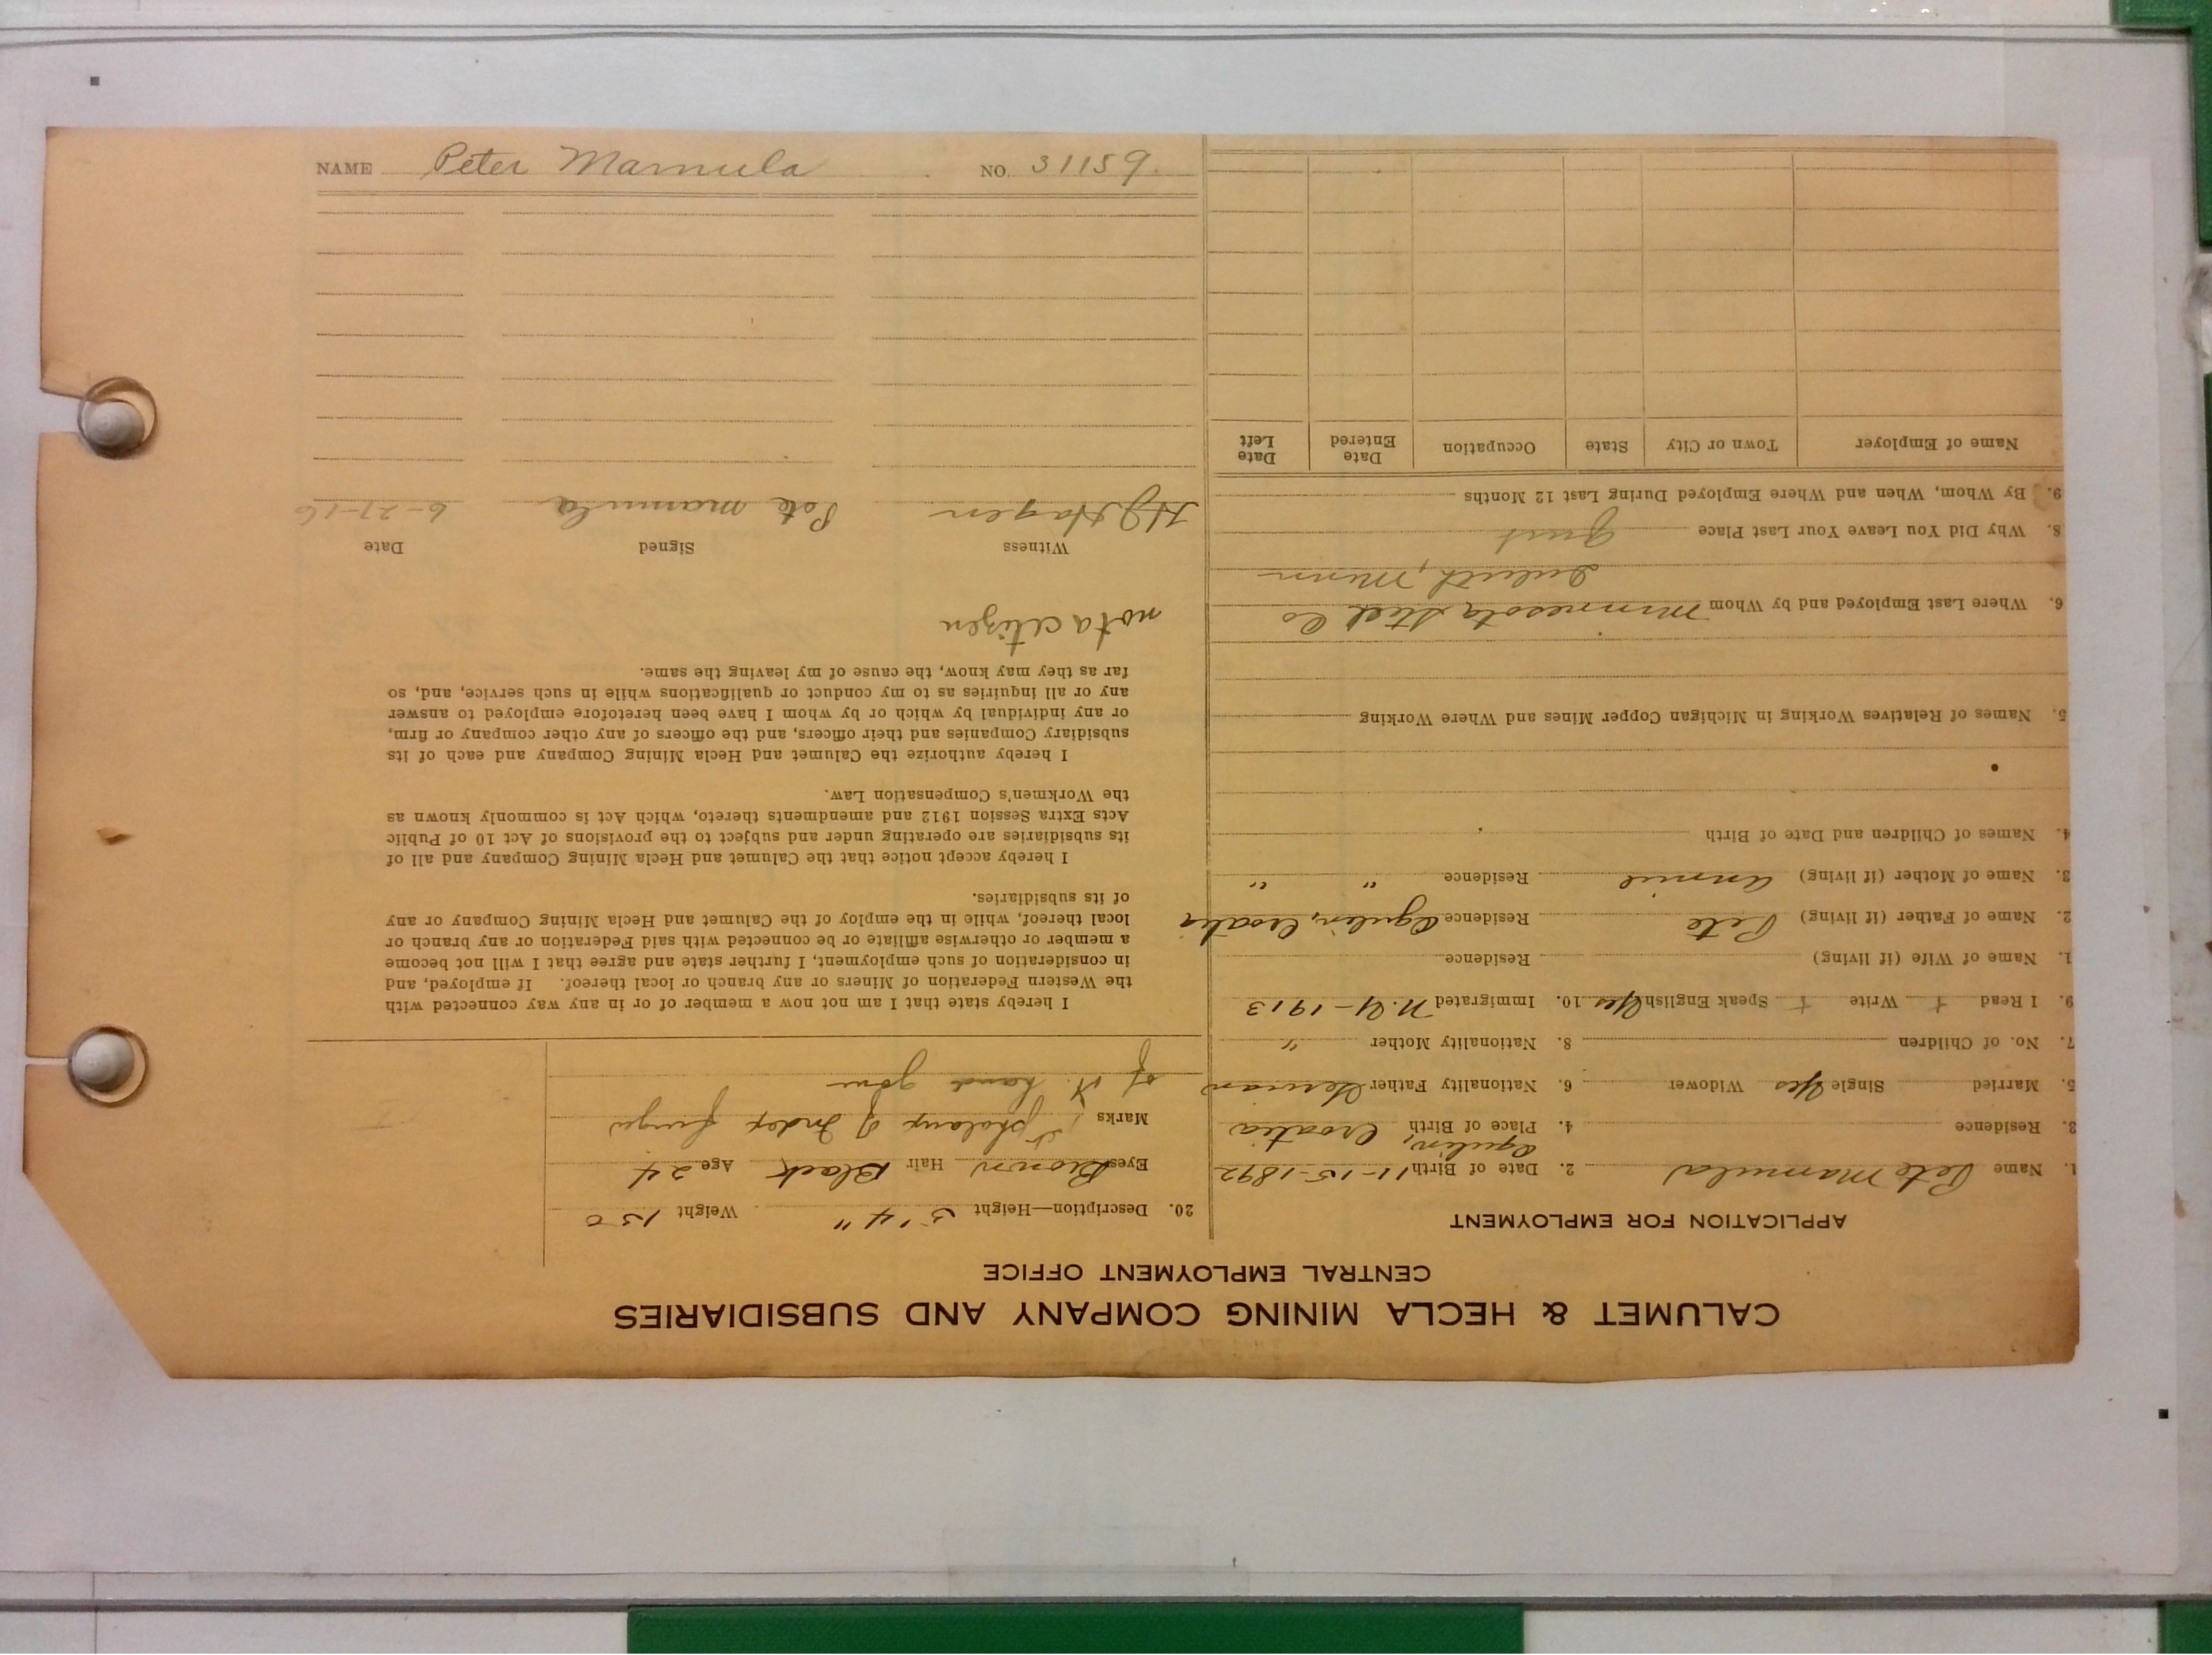 NAME Peter Mamula NO. 31159.
CALUMET & HECLA MINING COMPANY AND SUBSIDIARIES
CENTRAL EMPLOYMENT OFFICE
APPLICATION FOR EMPLOYMENT
1. Name Pete Mamula 2. Date of Birth 11-15-1892
3. Residence 4. Place of Birth Ogulin, Croatia
5. Married Single Yes Widower 6. Nationality Father German
7. No. of Children 8. Nationality Mother "
9. I Read + Write + Speak English Yes 10. Immigrated N.Y-1913
1. Name of Wife (if living) Residence
2. Name of Father (if living) Pete Residence Ogulin, Croatia
3. Name of Mother (if living) Annie Residence " "
4. Names of Children and Date of Birth
5. Names of Relatives Working in Michigan Copper Mines and Where Working
6. Where Last Employed and by Whom Minnesota Steel Co
Duluth, Minn
8. Why Did You Leave Your Last Place Quit
9. By Whom, When and Where Employed During Last 12 Months
Name of Employer Town or City State Occupation Date Entered Date Left
20. Description—Height 5'4" Weight 150
Eyes Brown Hair Black Age 24
Marks 1st phalanx of Index finger
of r. hand gone
I hereby state that I am not now a member of or in any way connected with
the Western Federation of Miners or any branch or local thereof. If employed, and
in consideration of such employment, I further state and agree that I will not become
a member or otherwise affiliate or be connected with said Federation or any branch or
local thereof, while in the employ of the Calumet and Hecla Mining Company or any
of its subsidiaries.
I hereby accept notice that the Calumet and Hecla Mining Company and all of
its subsidiaries are operating under and subject to the provisions of Act 10 of Public
Acts Extra Session 1912 and amendments thereto, which Act is commonly known as
the Workmen's Compensation Law.
I hereby authorize the Calumet and Hecla Mining Company and each of its
subsidiary Companies and their officers, and the officers of any other company or firm,
or any individual by which or by whom I have been heretofore employed to answer
any or all inquiries as to my conduct or qualifications while in such service, and, so
far as they may know, the cause of my leaving the same.
not a citizen
Witness Signed Date
HJ Hagen Pete mamula 6-27-16